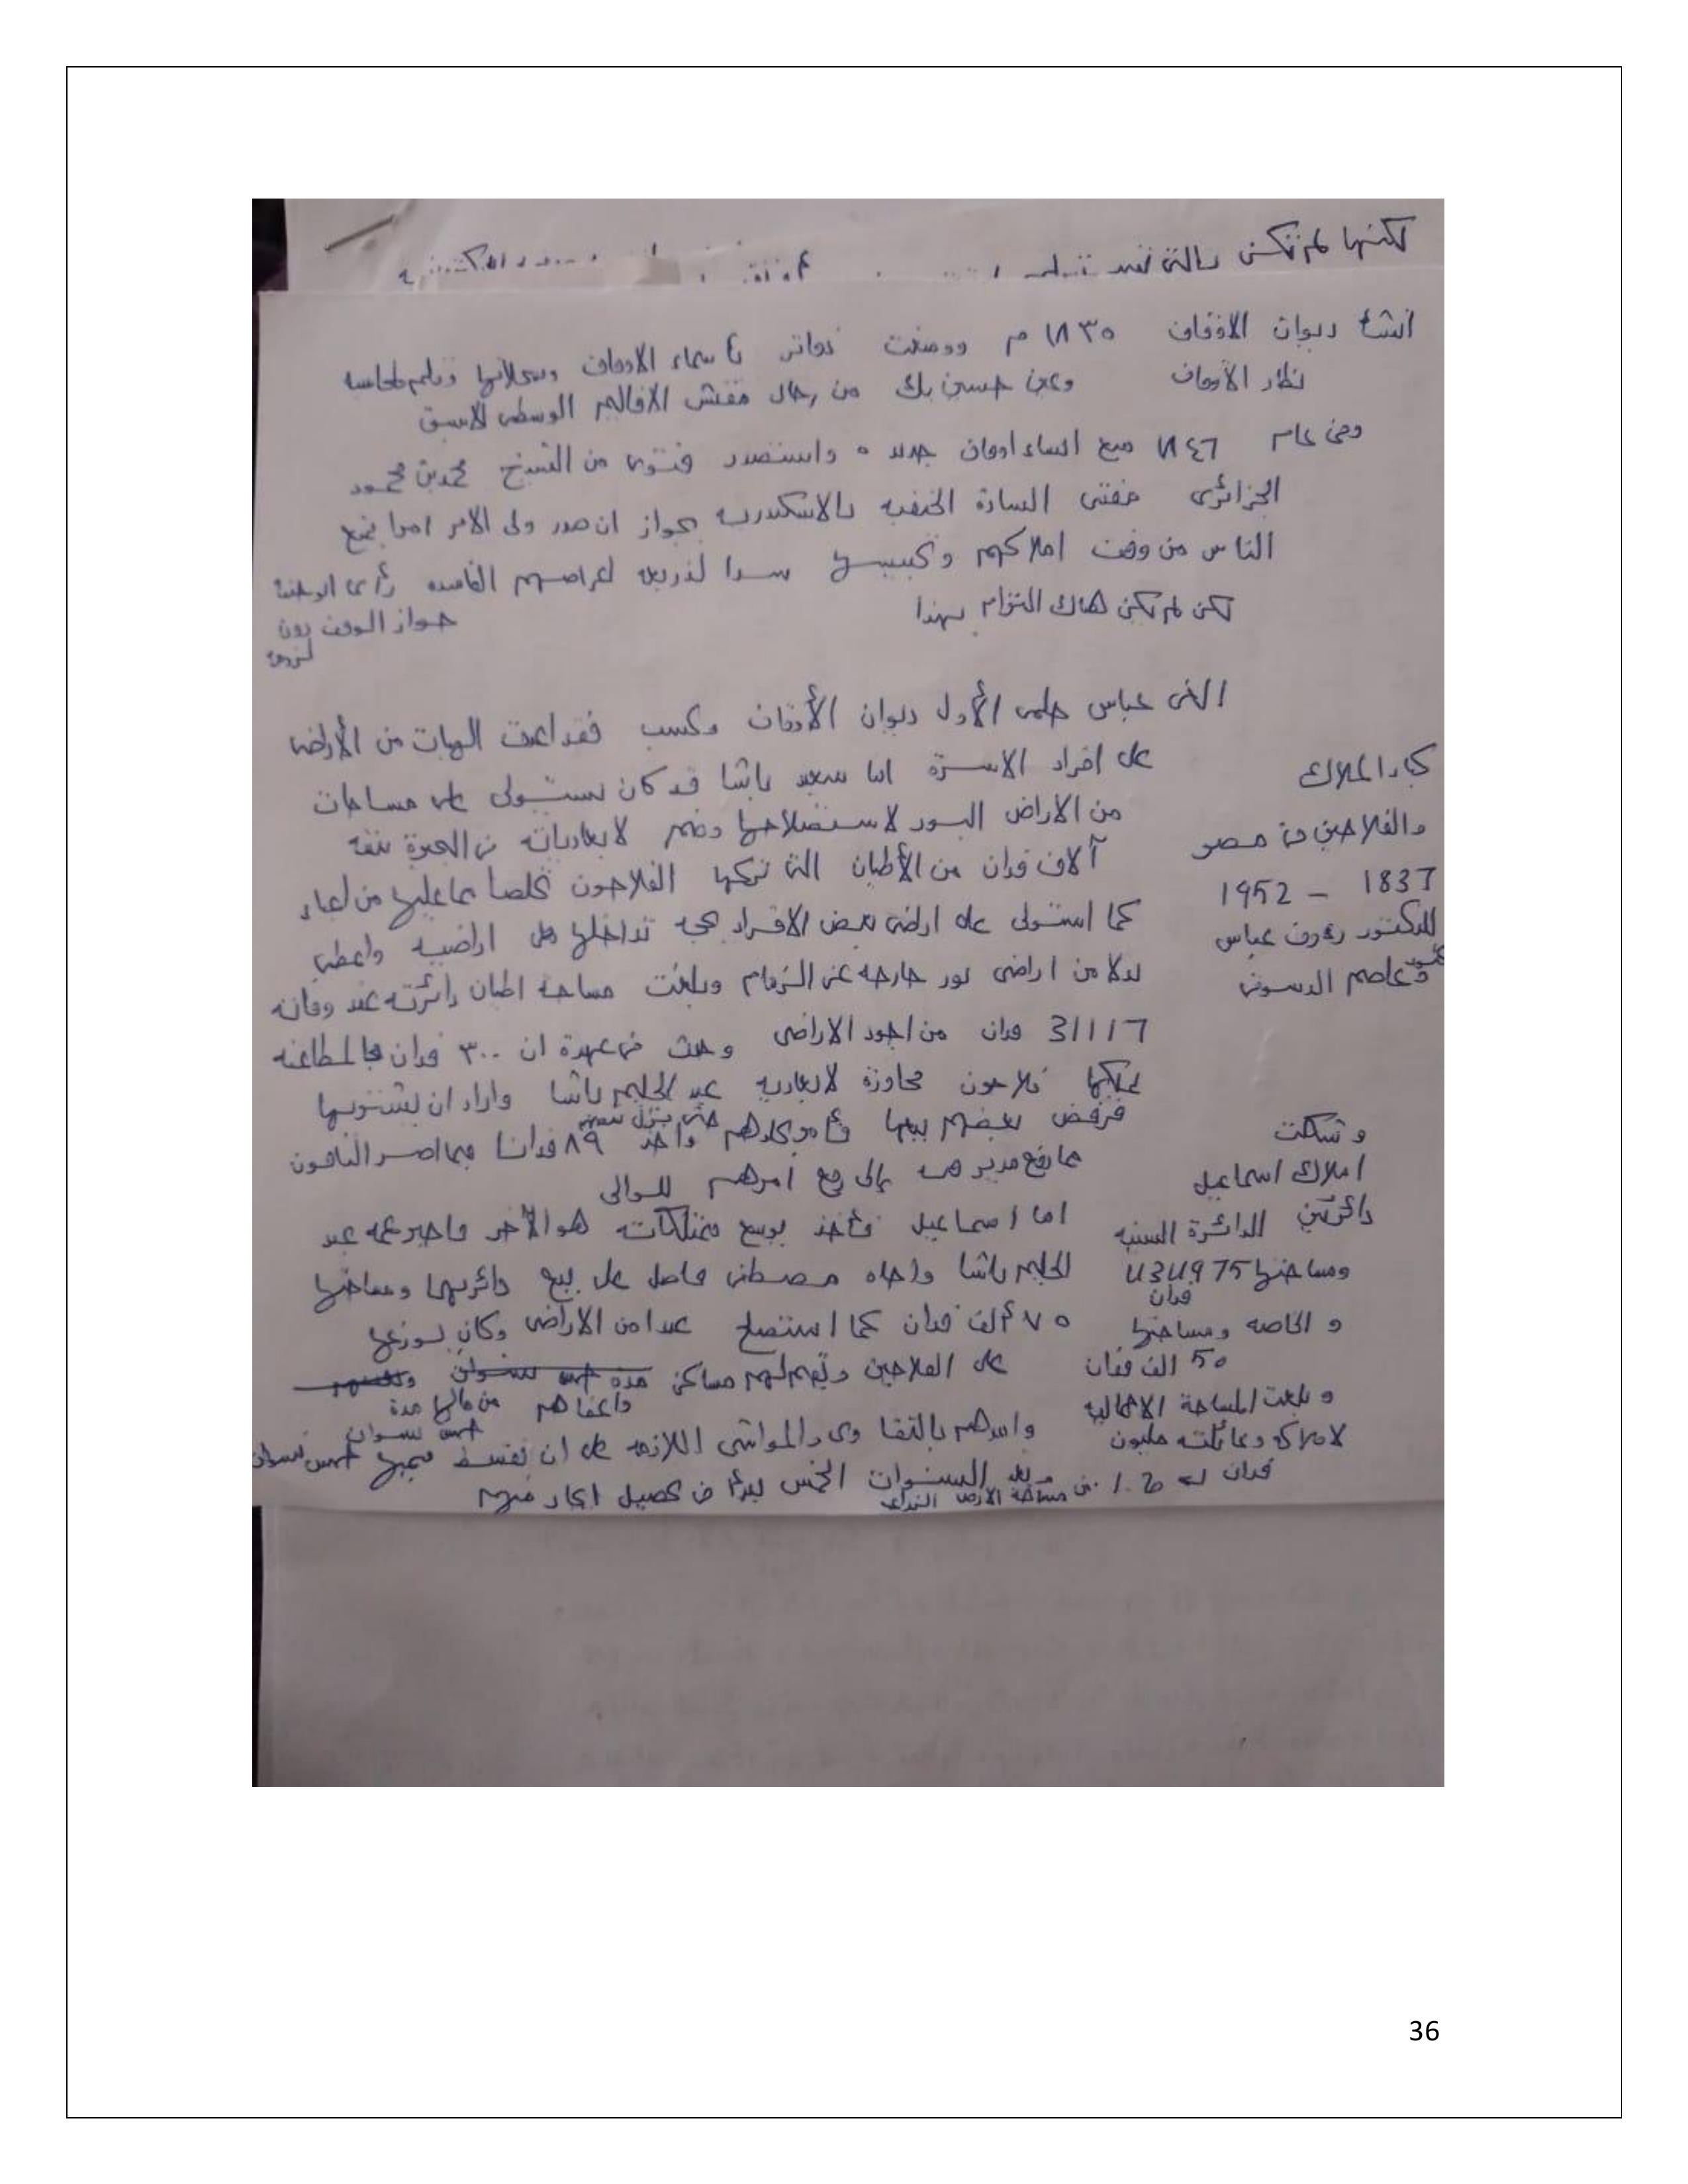 لكنها لم تكن بالتى
أنشأ ديوان الاوقاف ١٨٣٥ م ووضعت دفاتر بأسماء الاوقاف وسجلاتها وقلم لمحاسبة
نظار الأوقاف وعين حسين بك من رجال مفتش الاقاليم الوسطى الاسبق
وفى عام ١٨٤٦ منع انشاء اوقاف جديده واستصدر فتوى من الشيخ محمد بن محمود
الجزائرى مفتى السادة الحنفيه بالاسكندريه بجواز ان صدر ولى الامر امرا بمنع
الناس من وقف املاكهم وتحبيسها سدا لذريعه اغراضهم الفاسده رأى ابو حنيفة
جواز الوقف دون
لزومه
لكن لم تكن هناك التزام بهذا
الغى عباس حلمى الأول ديوان الأوقاف وكسب فقد اغدق الهبات من الأراضى
على افراد الاسرة اما سعيد باشا قد كان يستولى على مساحات
من الاراضى البور لاستصلاحها وضم لابعادياته فى البحيرة
آلاف فدان من الأطيان التى تركها الفلاحون تخلصا مما عليها من اعباء
كما استولى على اراضى بعض الافراد بحجة تداخلها فى اراضيه واعطى
بدلا من اراضى بور خارجه عن الزمام وبلغت مساحة اطيان دائرته عند وفاته
31117 فدان من اجود الاراضى وحدث فى عهده ان ٣٠٠ فدان بالمطاعنه
يملكها فلاحون مجاورة لابعاديه عبد الحليم باشا واراد ان يشتريها
فرفض بعضهم بيعها واخذ ٨٩ فدانا فيما اصر الباقون
مما دفع مدير قنا إلى رفع امرهم للوالى
اما اسماعيل فأخذ يوسع ممتلكاته هو الآخر واجبر عمه عبد
الحليم باشا واخاه مصطفى فاضل على بيع دائرتيهما ومساحتها
٧٥ ألف فدان كما استصلح عددا من الاراضى وكان يوزعها
على الفلاحين ويقيم لهم مساكن مدة خمس سنوات
واعفاهم من مالها مدة
خمس سنوات
وامدهم بالتقاوى والمواشى اللازمه على ان تقسط قيمتها خمس سنوات
وبعد السنوات الخمس يبدأ فى تحصيل ايجار منهم
كبار الملاك
والفلاحين فى مصر
1837 – 1952
للدكتور رءوف عباس
د عاصم الدسوقى
وشكلت
املاك اسماعيل
دائرتين الدائرة السنيه
ومساحتها
فدان
و الخاصه ومساحتها
50 الف فدان
و بلغت المساحة الاجمالية
لاملاكه وعائلته مليون
فدان
من مساحة الارض الزراعيه
36